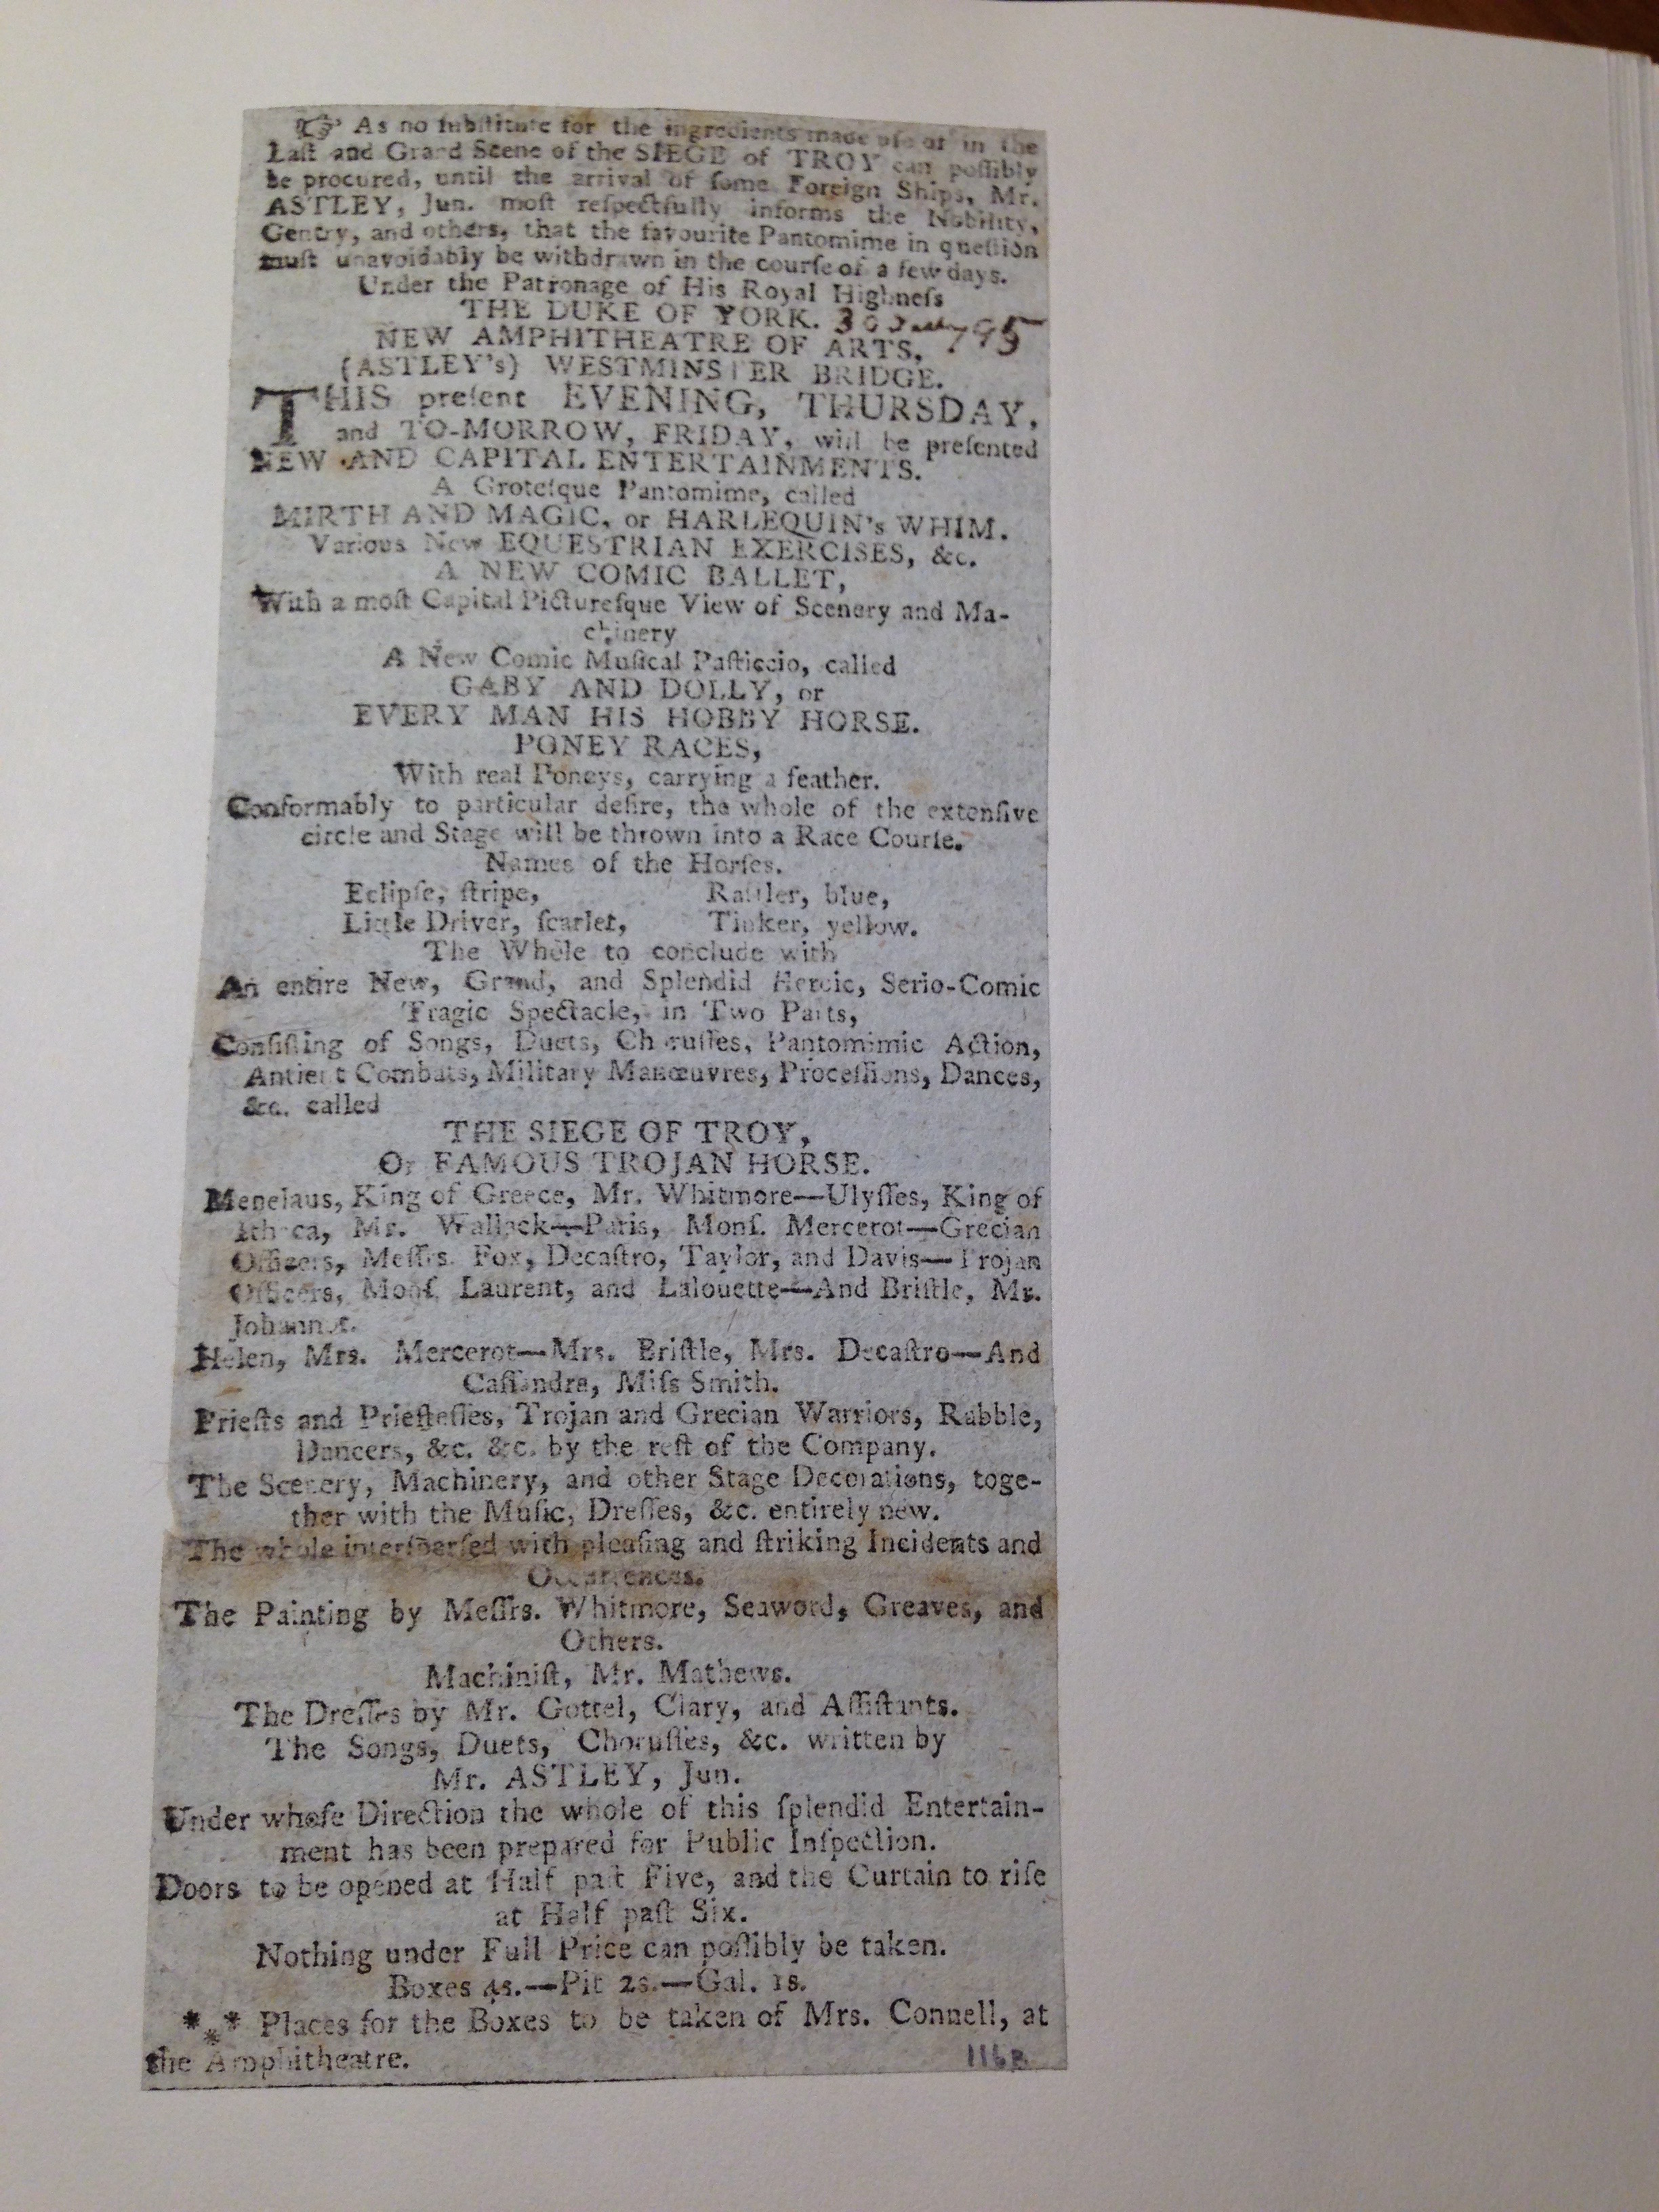 ☞ As no ſubſtitute for the ingredients made uſe of in the
Laſt and Grand Scene of the SIEGE of TROY can poſſibly
be procured, until the arrival of ſome Foreign Ships, Mr.
ASTLEY, Jun. moſt reſpectfully informs the Nobility,
Gentry, and others, that the favourite Pantomime in queſtion
muſt unavoidably be withdrawn in the courſe of a few days.
Under the Patronage of His Royal Highneſs
THE DUKE OF YORK. 30 795
NEW AMPHITHEATRE OF ARTS,
(ASTLEY's) WESTMINSTER BRIDGE.
THIS preſent EVENING, THURSDAY,
and TO-MORROW, FRIDAY, will be preſented
NEW AND CAPITAL ENTERTAINMENTS.
A Groteſque Pantomime, called
MIRTH AND MAGIC, or HARLEQUIN's WHIM.
Various New EQUESTRIAN EXERCISES, &c.
A NEW COMIC BALLET,
With a moſt Capital Pictureſque View of Scenery and Ma-
chinery
A New Comic Muſical Paſticcio, called
GABY AND DOLLY, or
EVERY MAN HIS HOBBY HORSE.
PONEY RACES,
With real Poneys, carrying a feather.
Conformably to particular deſire, the whole of the extenſive
circle and Stage will be thrown into a Race Courſe.
Names of the Horſes.
Eclipſe, ſtripe, Rattler, blue,
Little Driver, ſcarlet, Tinker, yellow.
The Whole to conclude with
An entire New, Grand, and Splendid Heroic, Serio-Comic
Tragic Spectacle, in Two Parts,
Conſiſting of Songs, Duets, Choruſſes, Pantomimic Action,
Antient Combats, Military Manœuvres, Proceſſions, Dances,
&c. called
THE SIEGE OF TROY,
Or FAMOUS TROJAN HORSE.
Menelaus, King of Greece, Mr. Whitmore—Ulyſſes, King of
Ithaca, Mr. Wallack—Paris, Monſ. Mercerot—Grecian
Officers, Meſſrs. Fox, Decaſtro, Taylor, and Davis—Trojan
Officers, Monſ. Laurent, and Lalouette—And Briſtle, Mr.
Johannot.
Helen, Mrs. Mercerot—Mrs. Briſtle, Mrs. Decaſtro—And
Caſſandra, Miſs Smith.
Prieſts and Prieſteſſes, Trojan and Grecian Warriors, Rabble,
Dancers, &c. &c. by the reſt of the Company.
The Scenery, Machinery, and other Stage Decorations, toge-
ther with the Muſic, Dreſſes, &c. entirely new.
The whole interſperſed with pleaſing and ſtriking Incidents and
Occurrences.
The Painting by Meſſrs. Whitmore, Seaword, Greaves, and
Others.
Machiniſt, Mr. Mathews.
The Dreſſes by Mr. Gottel, Clary, and Aſſiſtants.
The Songs, Duets, Choruſſes, &c. written by
Mr. ASTLEY, Jun.
Under whoſe Direction the whole of this ſplendid Entertain-
ment has been prepared for Public Inſpection.
Doors to be opened at Half paſt Five, and the Curtain to riſe
at Half paſt Six.
Nothing under Full Price can poſſibly be taken.
Boxes 4s.—Pit 2s.—Gal. 1s.
*⁎* Places for the Boxes to be taken of Mrs. Connell, at
the Amphitheatre. 116B